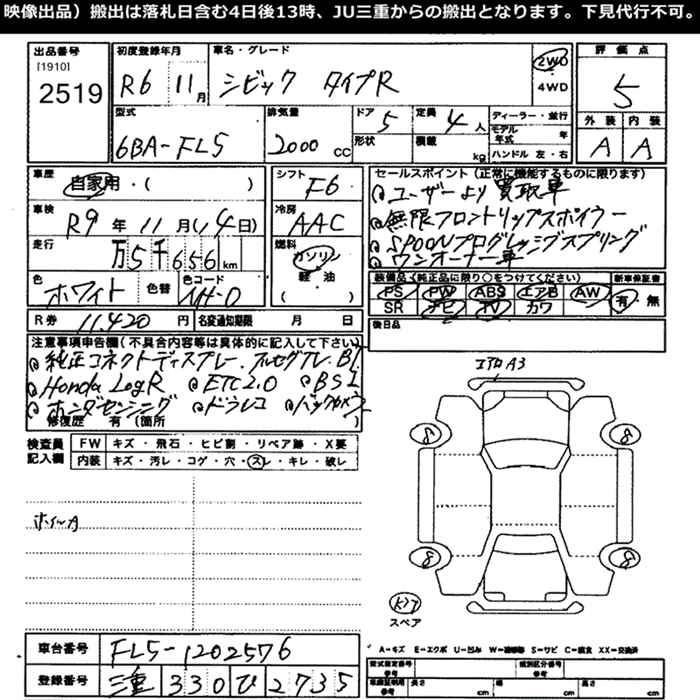 映像出品）搬出は落札日含む4日後13時、JU三重からの搬出となります。下見代行不可。
出品番号 初度登録年月 車名・グレード 評価点
[1910]
2519 R6 11月 シビック タイプR 2WD 4WD 5
型式 排気量 ドア 定員 ディーラー・並行 外装 内装
6BA-FL5 2000cc 5 4人 モデル年式 年 A A
形状 積載 kg ハンドル 左・右
車歴 自家用・( ) シフト F6 セールスポイント (正常に機能するものに限ります)
ユーザーより買取車
車検 R9年11月(14日) 冷房 AAC 無限フロントリップスポイラー
走行 万5千656km 燃料 ガソリン 軽油 ( ) SPOONプログレッシブスプリング
ワンオーナー車
色 ホワイト 色替 色コード NH-0 装備品 (純正品に限り○をつけてください) 新車保証書
PS PW ABS エアB AW 有 無
SR ナビ TV カワ
R券 11,420円 名変通知期限 月 日 後日品
注意事項申告欄 (不具合内容等は具体的に記入して下さい)
純正コネクトディスプレー. フルセグTV. BT
Honda LogR ETC2.0 BSI
ホンダセンシング ドラレコ バックカメラ
修復歴 有 (箇所 )
エアロ A3
検査員記入欄 FW キズ・飛石・ヒビ割・リペア跡・X要
内装 キズ・汚レ・コゲ・穴・スレ・キレ・破レ
8 8
ホイールA
8 8
スペア
A=キズ E=エクボ U=凹み W=補修跡 S=サビ C=腐食 XX=交換済
車台番号 FL5-1202576
型式指定番号 参考 類別区分番号 参考
登録番号 三重 330 ひ 2735
車庫証明用 参考 長さ cm 幅 cm 高さ cm